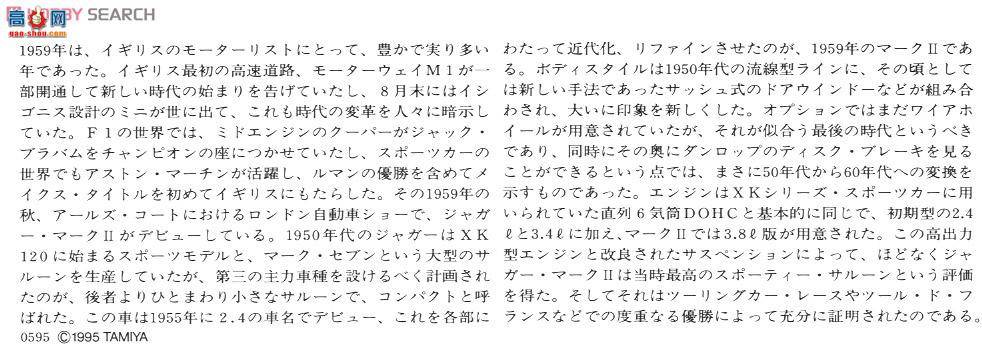 高 网
HOBBY SEARCH
1959年は、イギリスのモーターリストにとって、豊かで実り多い
年であった。イギリス最初の高速道路、モーターウェイM1が一
部開通して新しい時代の始まりを告げていたし、8月末にはイシ
ゴニス設計のミニが世に出て、これも時代の変革を人々に暗示し
ていた。F1の世界では、ミドエンジンのクーパーがジャック・
ブラバムをチャンピオンの座につかせていたし、スポーツカーの
世界でもアストン・マーチンが活躍し、ルマンの優勝を含めてメ
イクス・タイトルを初めてイギリスにもたらした。その1959年の
秋、アールズ・コートにおけるロンドン自動車ショーで、ジャガ
ー・マークⅡがデビューしている。1950年代のジャガーはXK
120に始まるスポーツモデルと、マーク・セブンという大型のサ
ルーンを生産していたが、第三の主力車種を設けるべく計画され
たのが、後者よりひとまわり小さなサルーンで、コンパクトと呼
ばれた。この車は1955年に2.4の車名でデビュー、これを各部に
わたって近代化、リファインさせたのが、1959年のマークⅡであ
る。ボディスタイルは1950年代の流線型ラインに、その頃として
は新しい手法であったサッシュ式のドアウインドーなどが組み合
わされ、大いに印象を新しくした。オプションではまだワイアホ
イールが用意されていたが、それが似合う最後の時代というべき
であり、同時にその奥にダンロップのディスク・ブレーキを見る
ことができるという点では、まさに50年代から60年代への変換を
示すものであった。エンジンはXKシリーズ・スポーツカーに用
いられていた直列6気筒DOHCと基本的に同じで、初期型の2.4
ℓと3.4ℓに加え、マークⅡでは3.8ℓ版が用意された。この高出力
型エンジンと改良されたサスペンションによって、ほどなくジャ
ガー・マークⅡは当時最高のスポーティー・サルーンという評価
を得た。そしてそれはツーリングカー・レースやツール・ド・フ
ランスなどでの度重なる優勝によって充分に証明されたのである。
0595 ©1995 TAMIYA